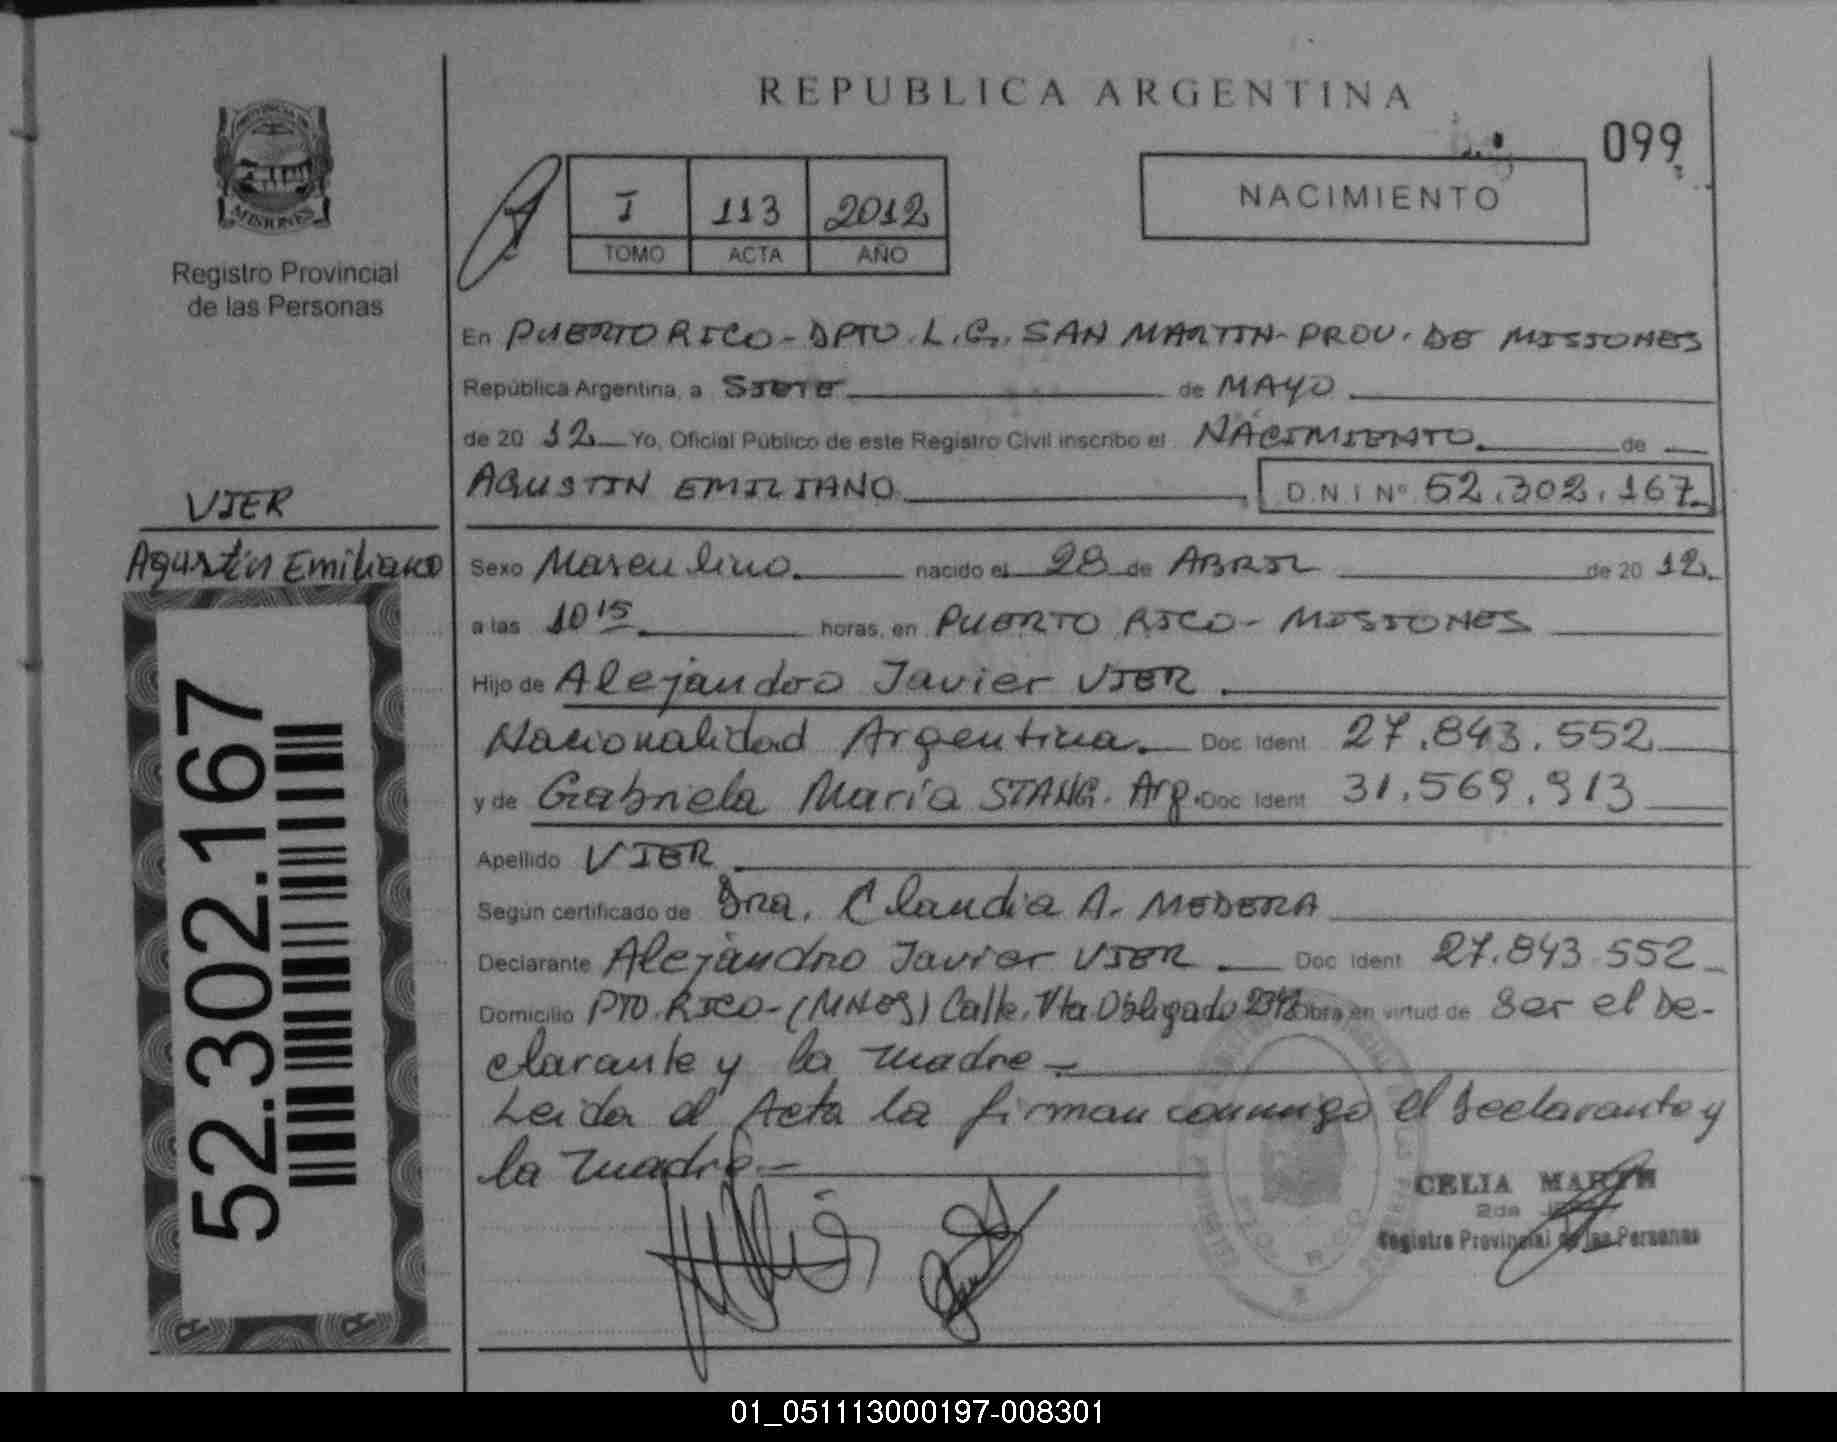 REPUBLICA ARGENTINA
099
PROVINCIA DE
MISIONES
Registro Provincial
de las Personas
I 113 2012
TOMO ACTA AÑO
NACIMIENTO
En PUERTO RICO - DPTO. L.G. SAN MARTIN - PROV. DE MISIONES
República Argentina, a SIETE de MAYO
de 20 12 Yo, Oficial Público de este Registro Civil inscribo el NACIMIENTO de
AGUSTIN EMILIANO D.N.I Nº 52.302.167
VIER
Agustin Emiliano
52.302.167
Sexo Masculino. nacido el 28 de ABRIL de 20 12.
a las 10 15 horas, en PUERTO RICO - MISIONES
Hijo de Alejandro Javier VIER.
Nacionalidad Argentina. Doc Ident 27.843.552
y de Gabriela María STANG. Arg. Doc Ident 31.569.913
Apellido VIER
Según certificado de Dra. Claudia A. MEDERA
Declarante Alejandro Javier VIER Doc Ident 27.843.552
Domicilio PTO. RICO - (MNES) Calle. Vta Obligado Obra en virtud de Ser el De-
clarante y la madre -
Leida el Acta la firman conmigo el Declarante y
la madre. -
CELIA
2da
Registro Provincial de las Personas
01_051113000197-008301